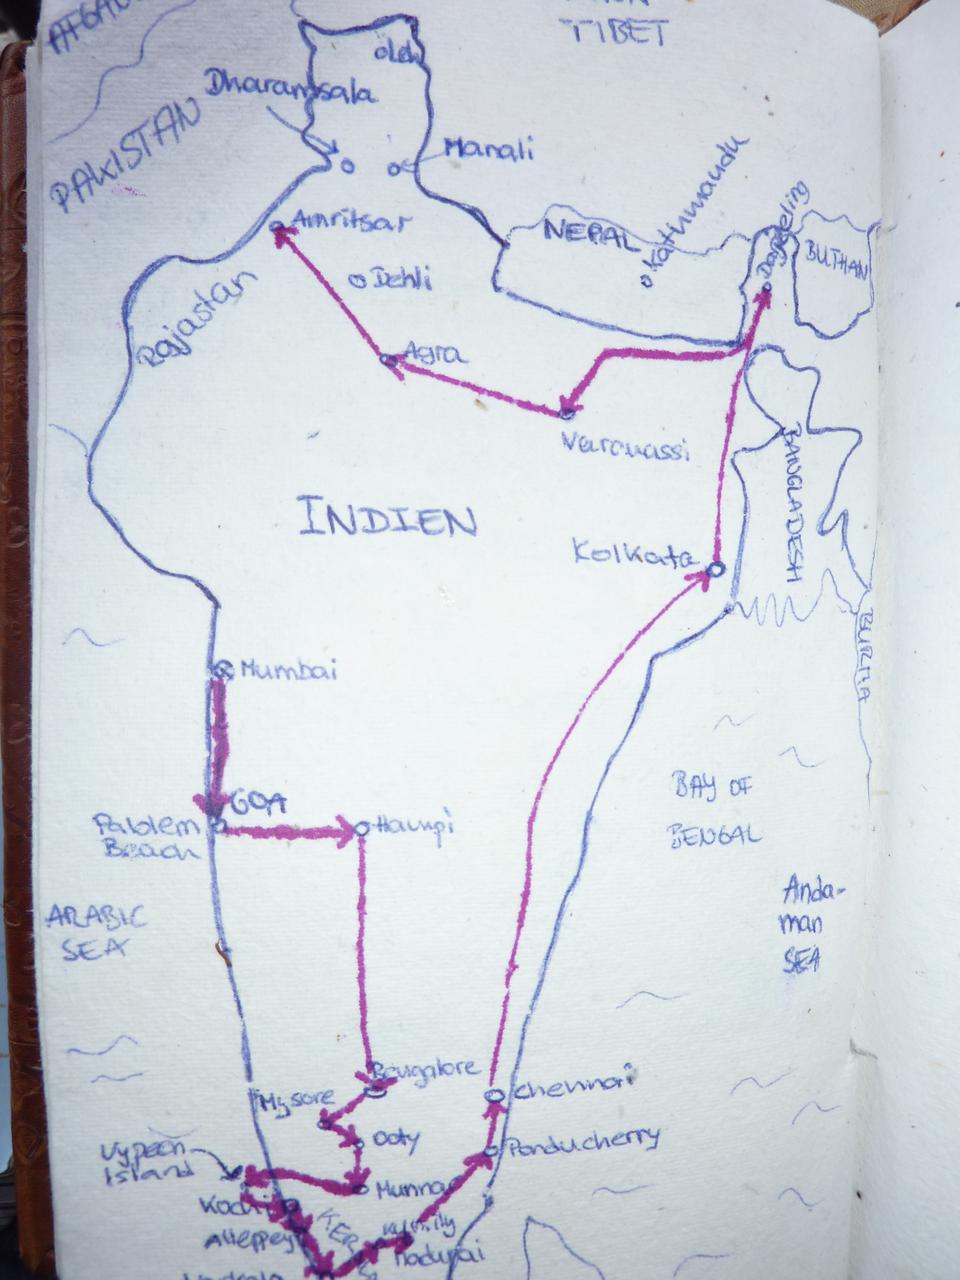 TIBET
oLeh
Dharamsala
PAKISTAN
Manali
Kathmandu
Amritsar
NEPAL
BUTHAN
Dehli
Rajastan
Agra
Varanassi
BANGLADESH
INDIEN
Kolkata
BURMA
Mumbai
BAY OF
BENGAL
GOA
Palolem
Beach
Hampi
ARABIC
SEA
Anda-
man
SEA
Bangalore
Mysore
Chennai
Ooty
Ponducherry
Vypeen
Island
Munnar
Kochi
Alleppey
Kumily
Madurai